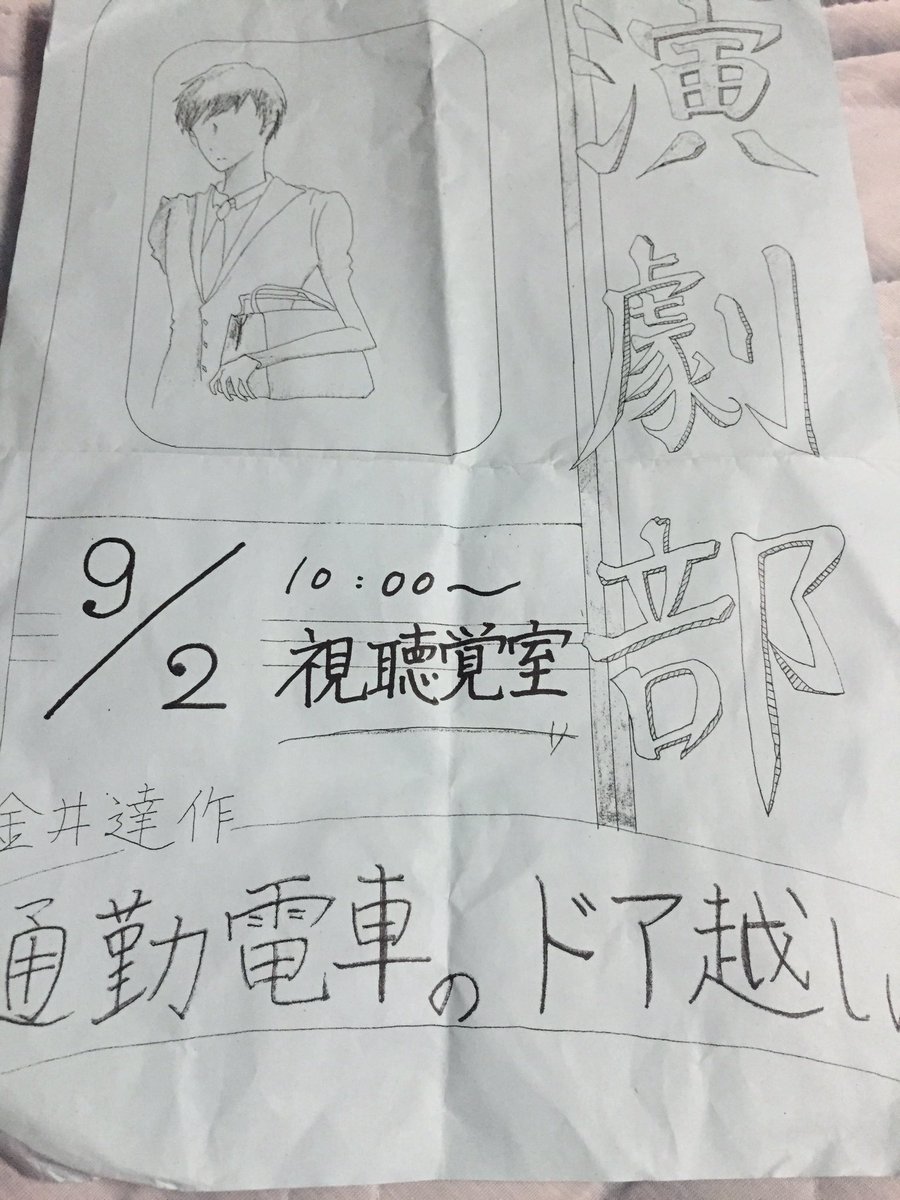 演劇部
9/2
10:00〜
視聴覚室
金井達作
通勤電車のドア越し